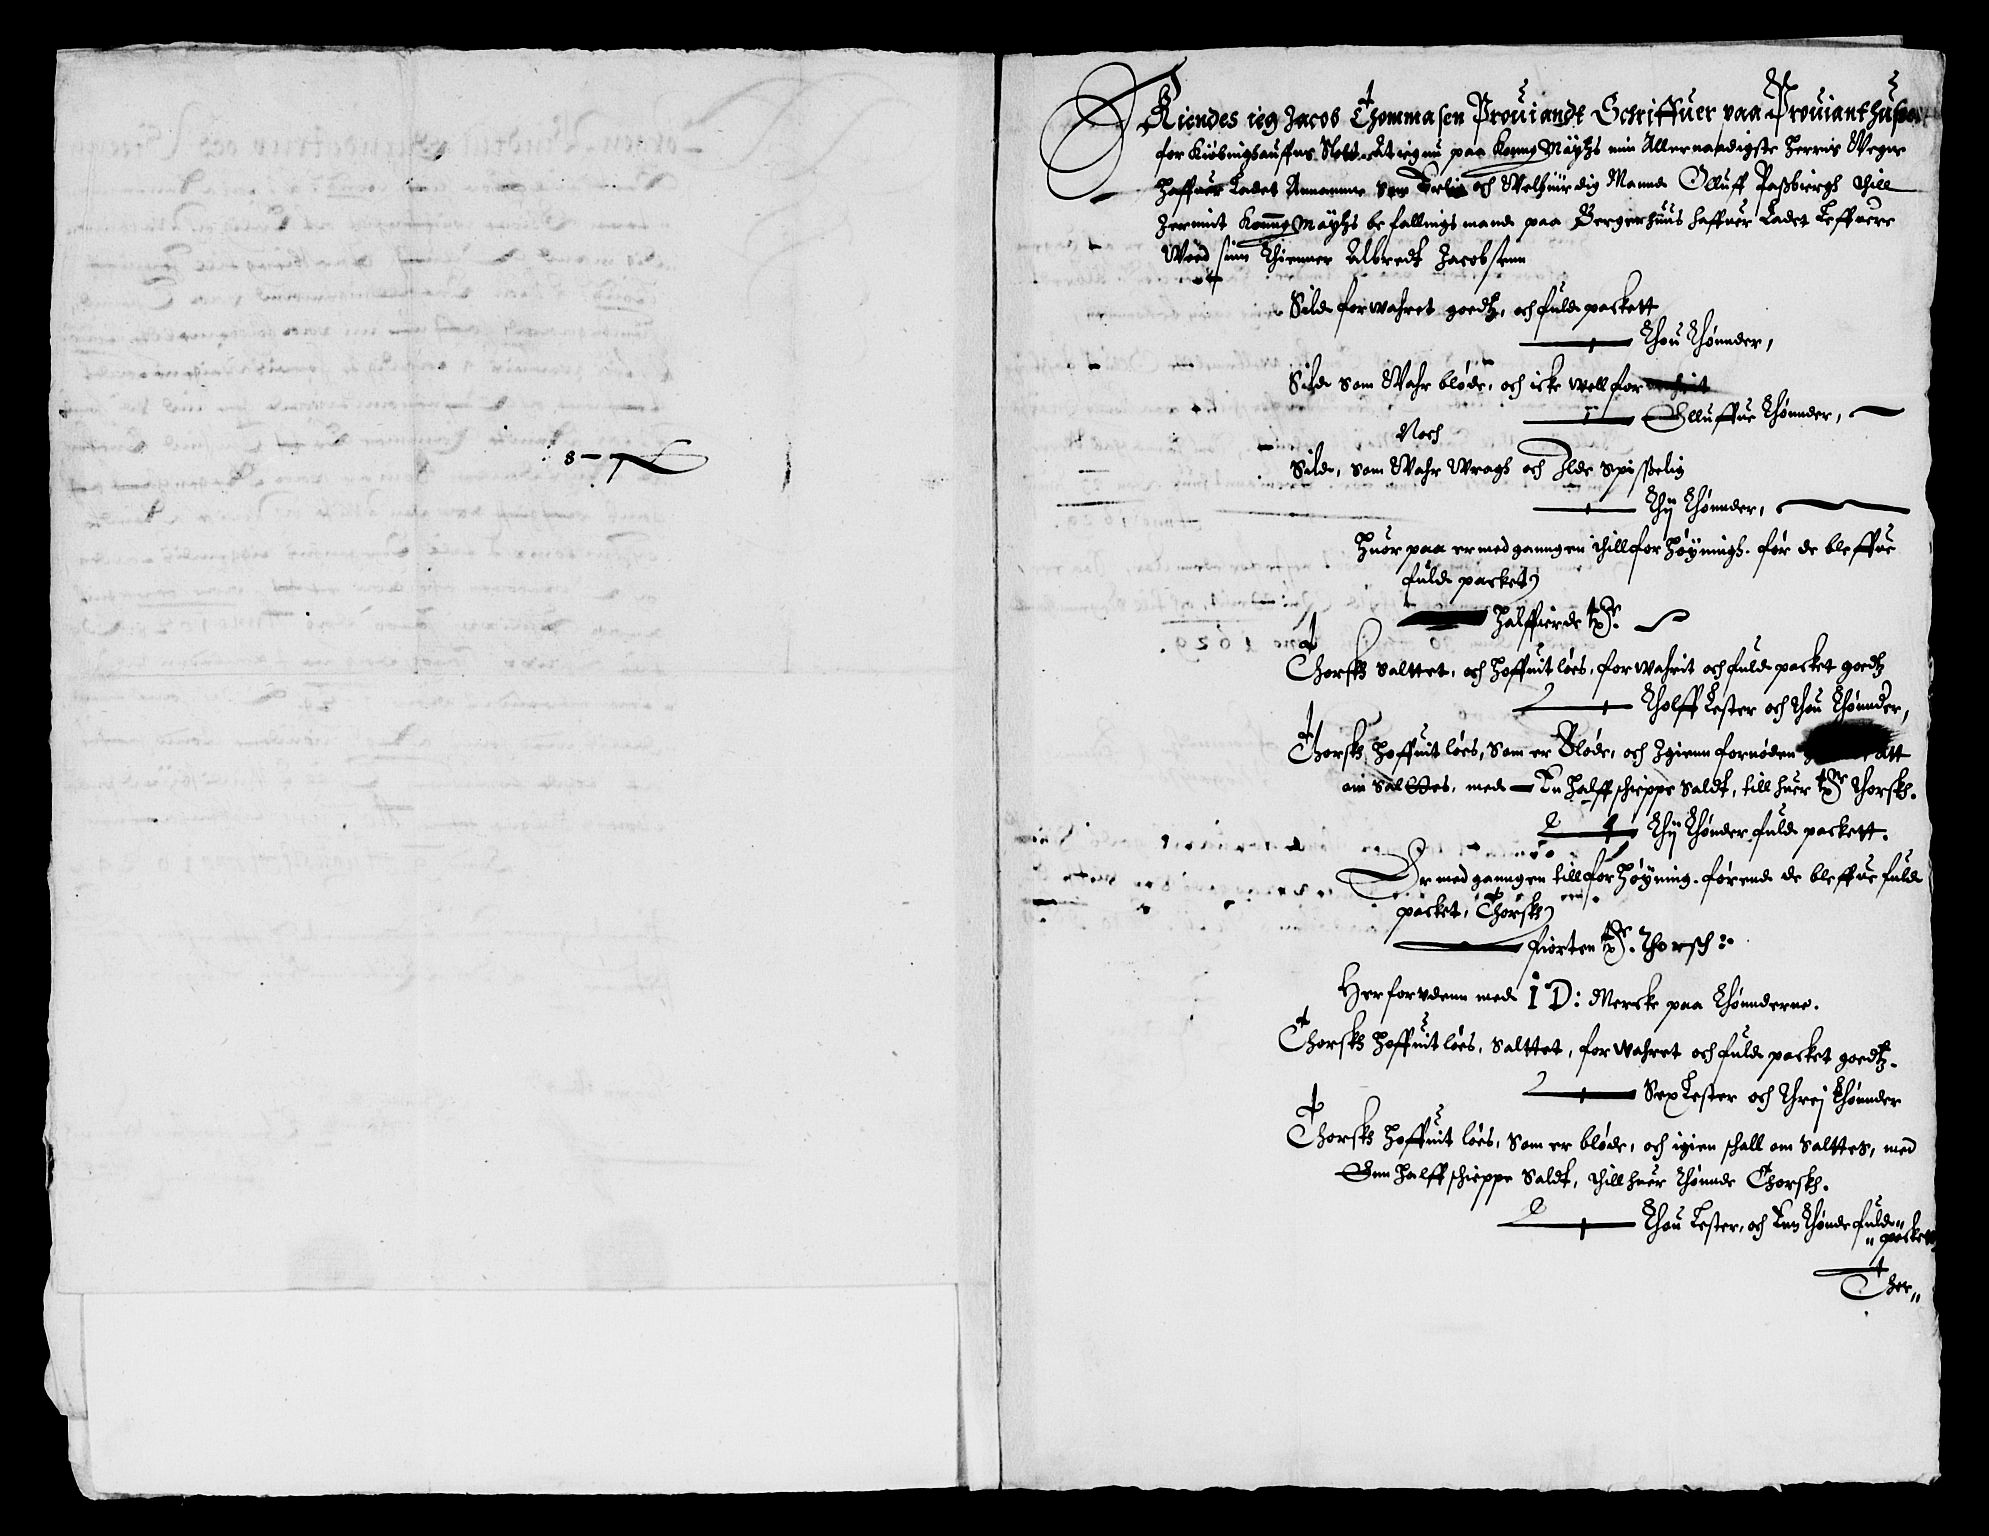 8
Kiendes ieg Jacob Thommasen Prouiandt Schriffuer paa Prouianthuset
for Kiøbinghauffns Slott Att ieg nu paa Konng Mäytzs min Allernaadigste Herris Wegne
Haffuer Ladet Annamme Erlig och Welbyrdig Mannd Olluff Passbiergh thill
Jermiit Konng Mäytzs befallings mand paa Bergenhuus haffuer Ladet Leffuere
Wed sinn Thienner Albredt Jacobsenn
Sild forwahret goedtz, och fuld packett
Thou Thønnder,
Sild som Wahr bløde, och icke well forwahrit
Olluffue Thønnder,
Noch
Sild, som Wahr Wragh och Ilde Spisselig
Thij Thønnder,
Huor paa er med ganngen thill for Høyningh. før de bleffue
fuld packet
Halffierde tdr.
Thorsk Salttet, och Hoffuit løes, forwahrit och fuld packet goedtz
Tholff Lester och thou Thønnder,
Thorsk Hoffuit løes, Som er Bløde, och Igienn fornøden att
om Salttes, med En Halff schieppe Saldt, till huer tdr Thorsk.
Thij Thønder fuld packett.
Er med ganngen till for Høyning. førend de bleffue fuld
packet, Thorsk
fiorten tdr. Thorsch:
Herforudenn med I D: Mercke paa Thønnderne.
Thorsk Hoffuit løes, Salttet, forwahret och fuld packet goedtz.
Sex Lester och Threj Thønnder
Thorsk Hoffuit løes, Som er bløde, och igien schall om Salttes, med
Enn Halff schieppe Saldt, thill huer Thønnde Thorsk.
Thou Lester, och Enn Thønde fuld"
"packett
Thor"